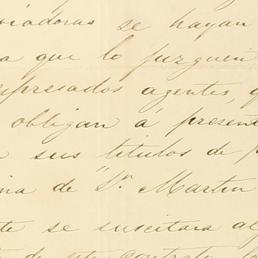 iadoras se hayan
a que lo juzguen
xpresados agentes, q
obligan a present
sus titulos de p
ina de "Sn. Martin
te se suscitara al
de este contrato